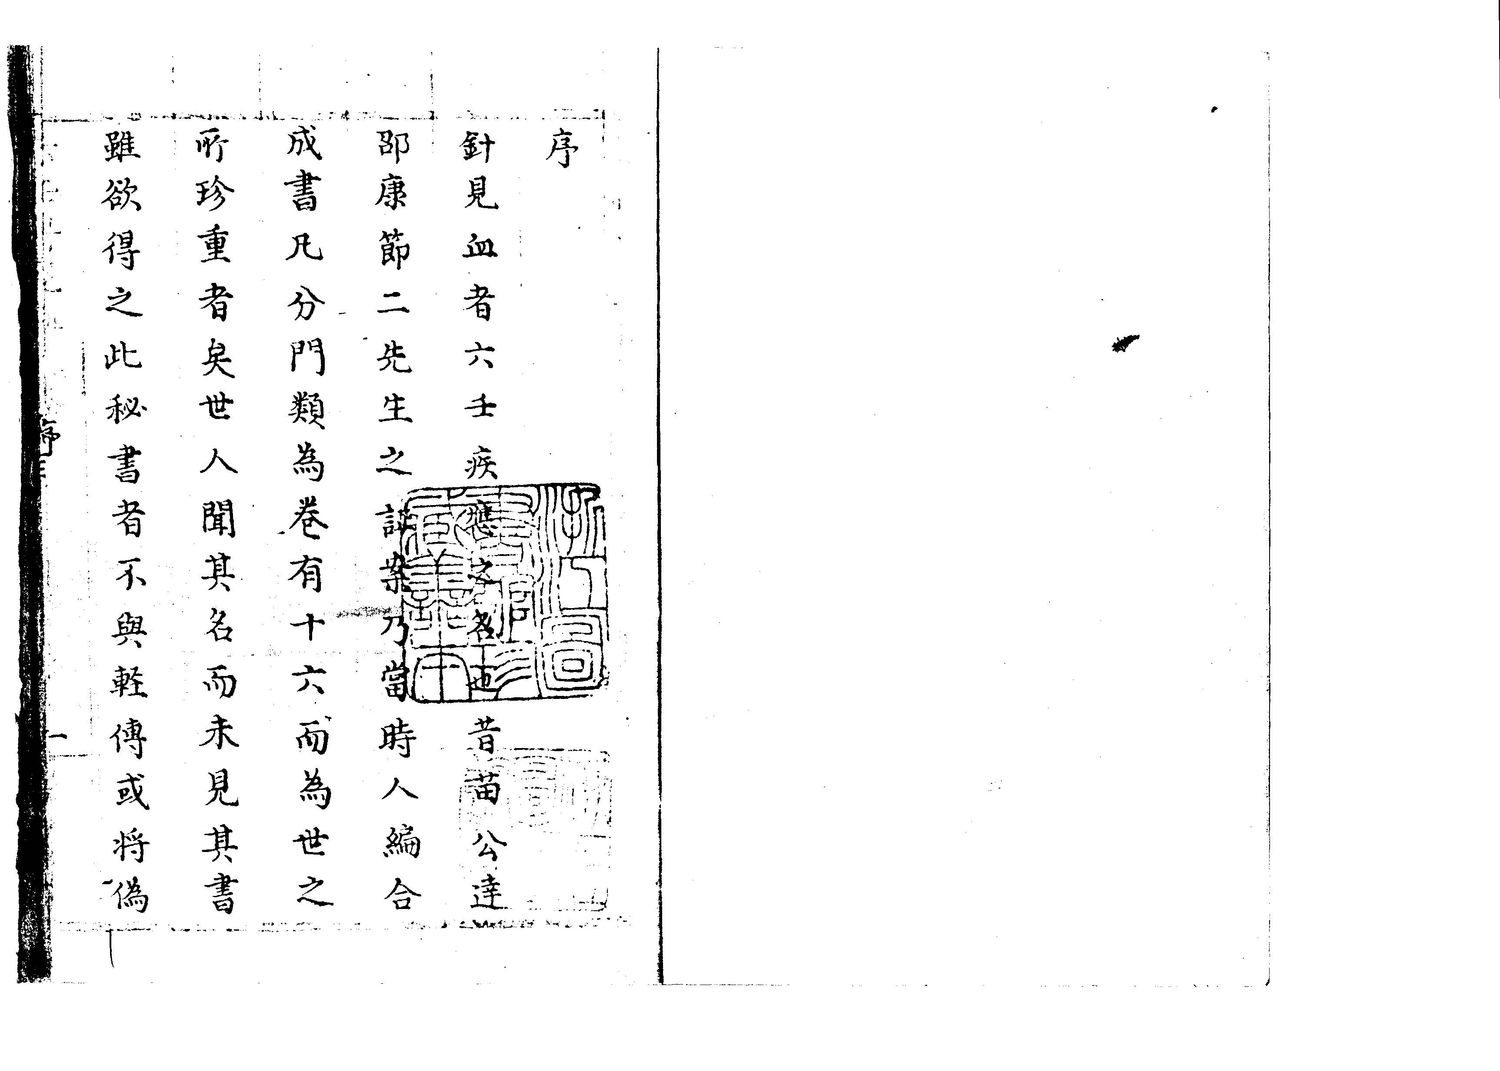 序
針見血者六壬疾應之名也昔苗公達
邵康節二先生之記案乃當時人編合
成書凡分門類為卷有十六而為世之
所珍重者矣世人聞其名而未見其書
雖欲得之此秘書者不與軽傳或将偽
序
一